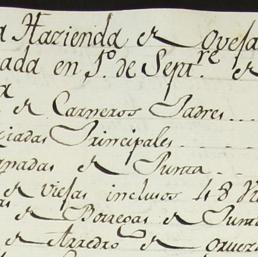 a Hazienda de Oveja
ada en 1º de Septre de
a
de Carneros Padres
Principales
de Punta
de viejas inclusos 48
de Borregas de Punta
de Arredro de